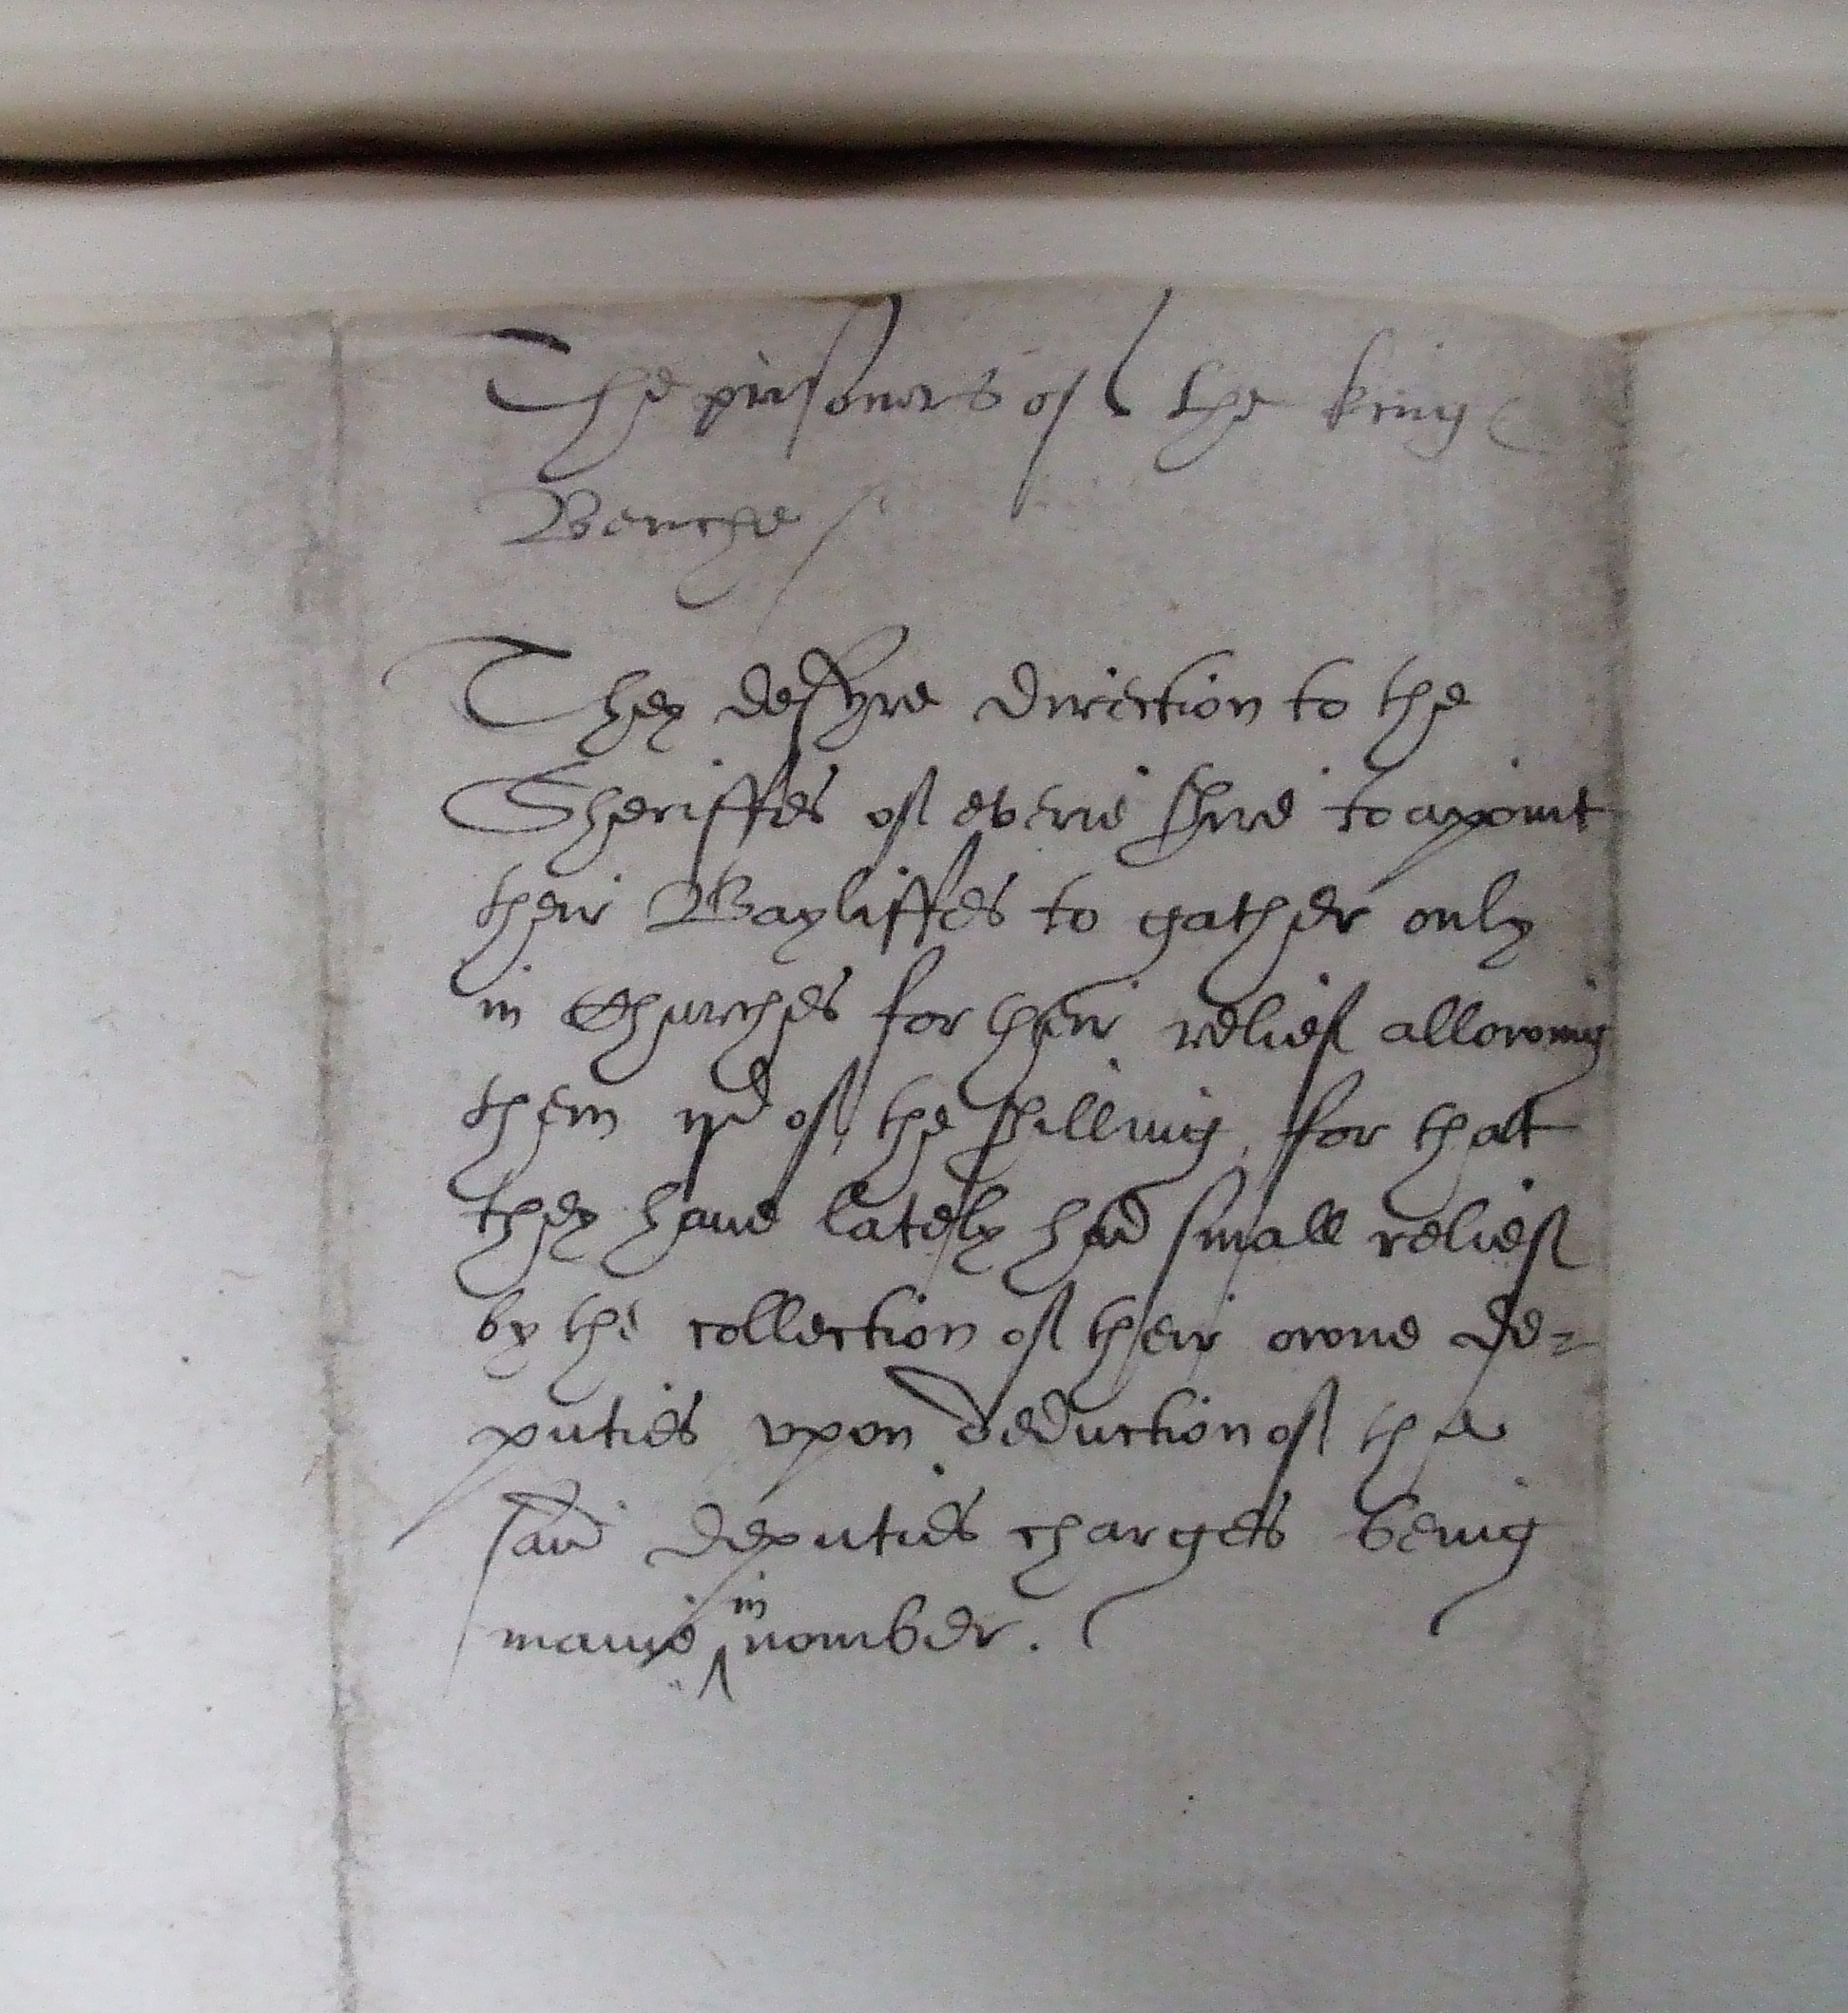 The prisoners of the kings
Benche
They desyre direction to the
Sheriffes of everie shire to apoint
their Bayliffes to gather only
in Churches for their relief allowing
them ijd of the shilling, for that
they haue lately had small relief
by the collection of their owne de=
puties vpon deduction of the
said deputies charges being
manie ^in nomber.